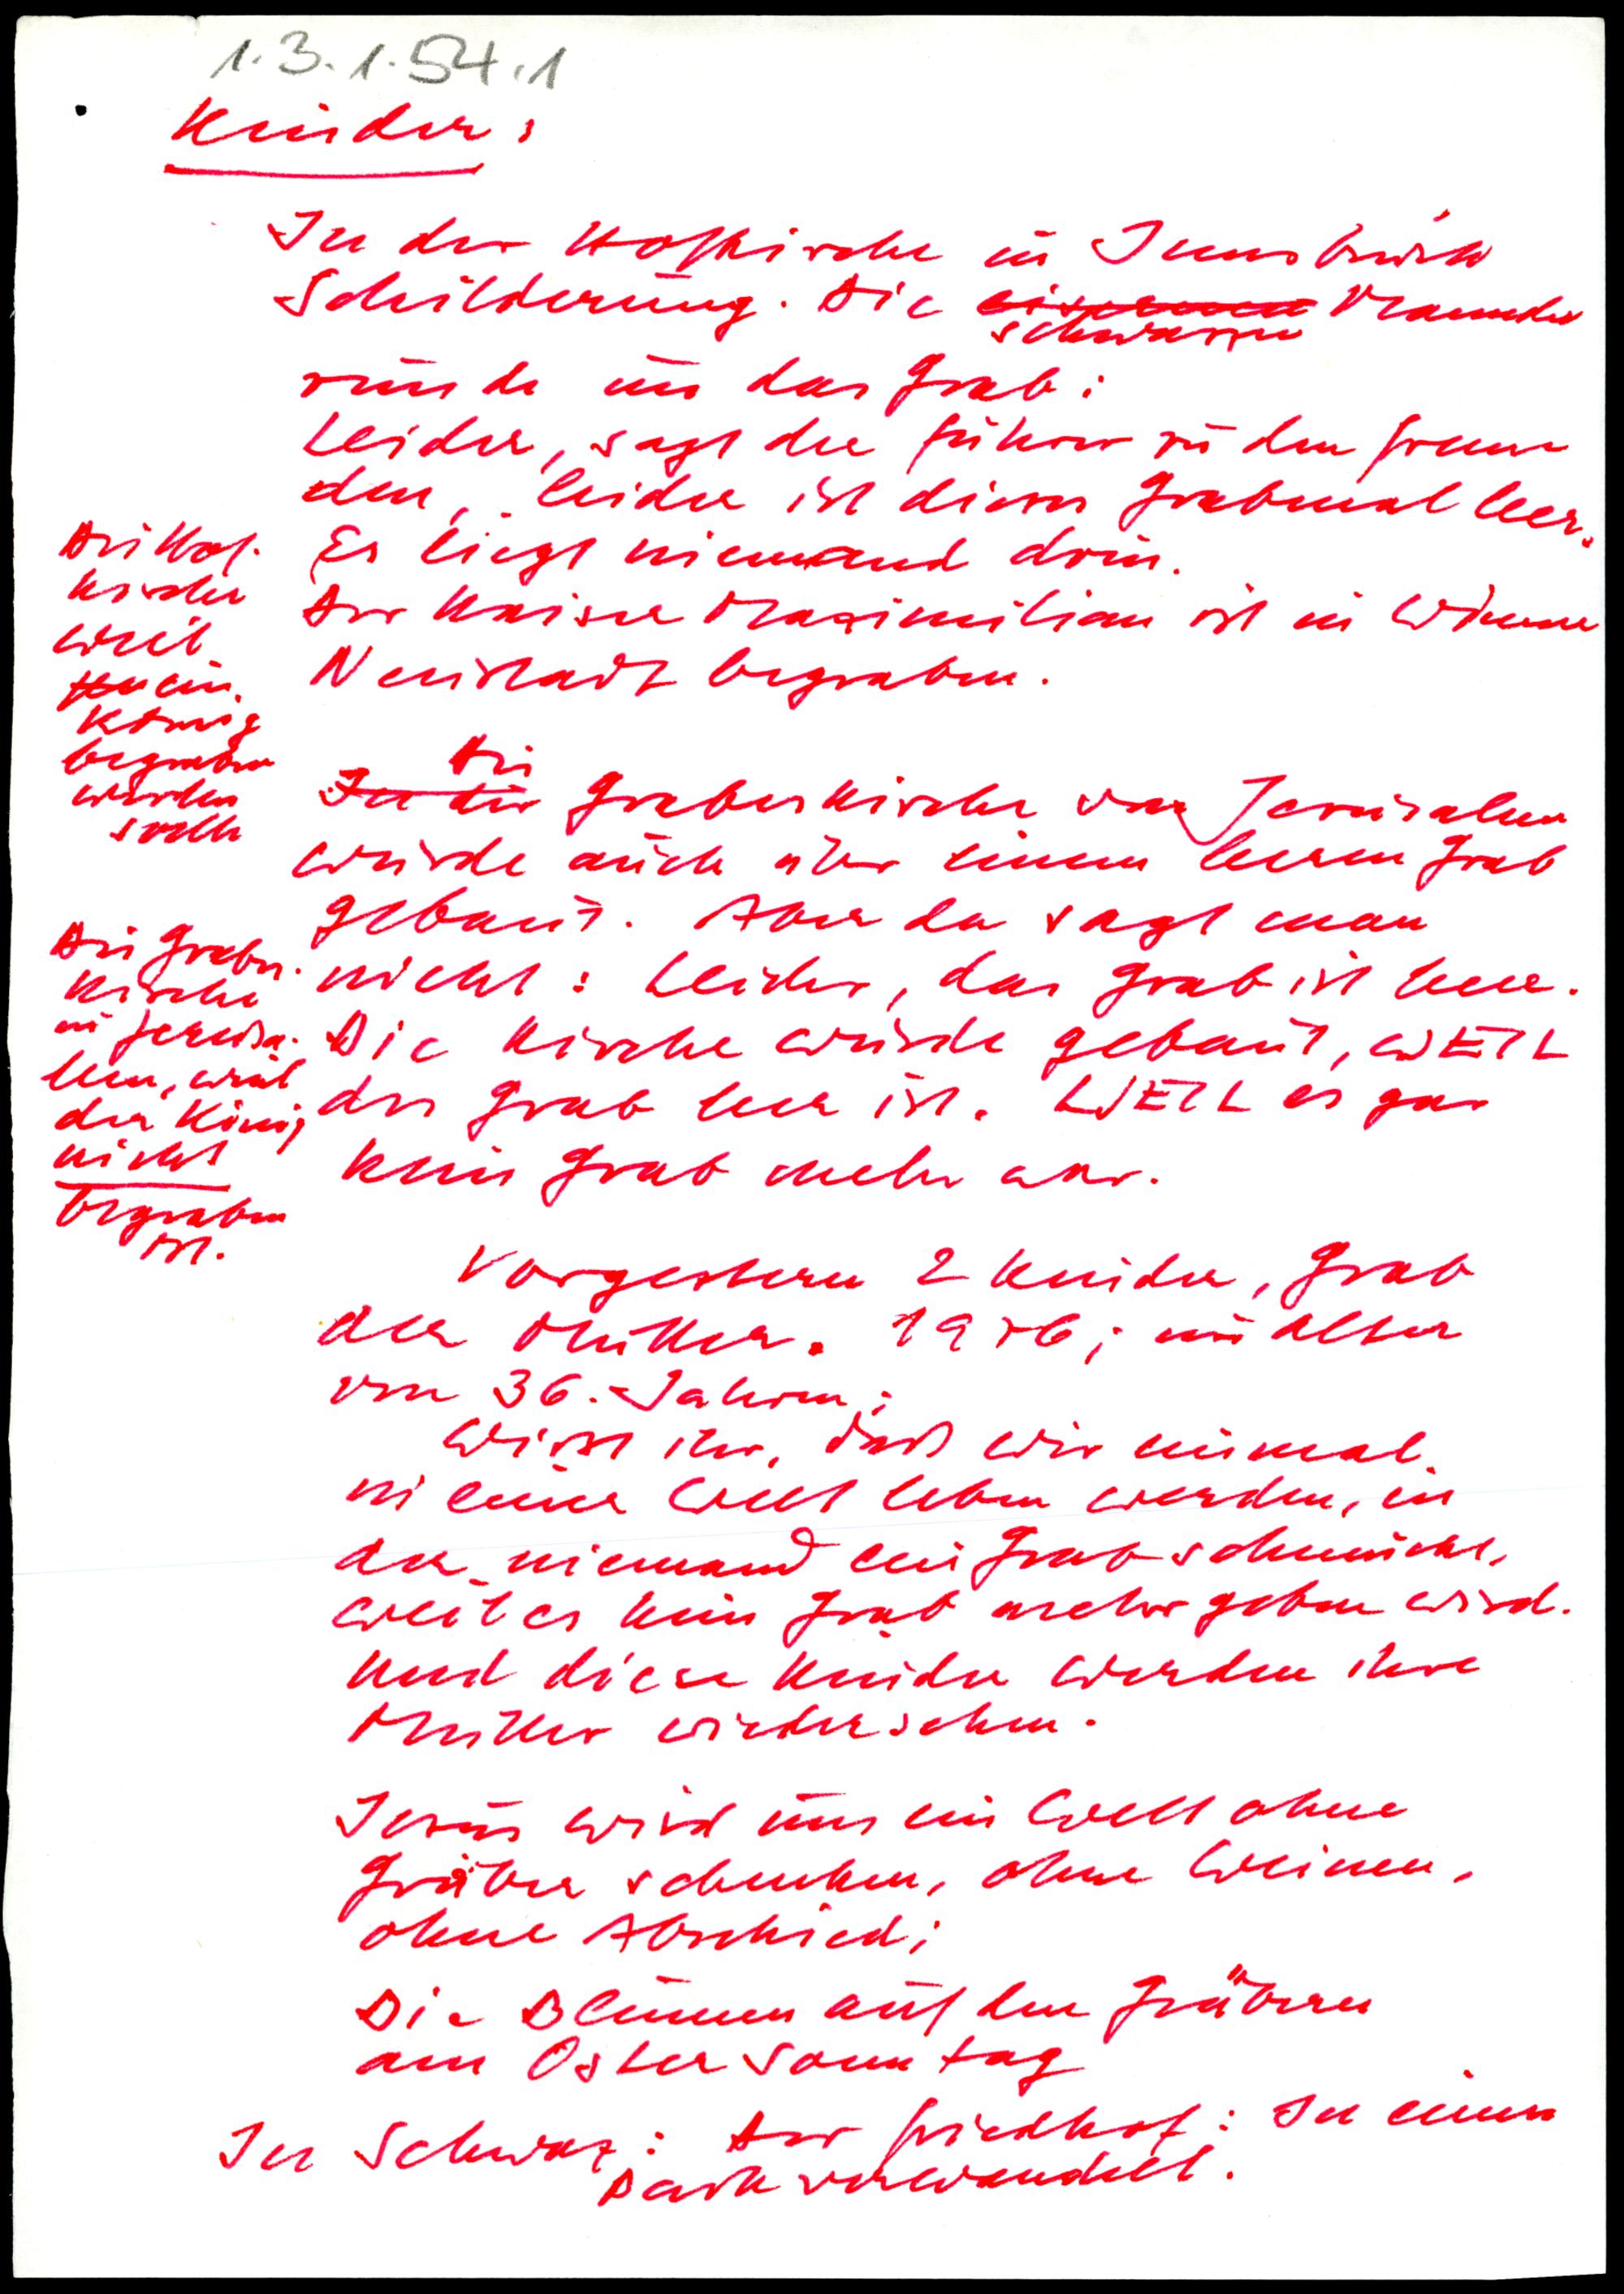 1.3.1.54.1
Kinder:
In der Hofkirche in Innsbruck
Schilderung. Die eisernen Mander
schwarzen
runde um das Grab:
Leider, sagt der Führer zu den Frem
den, leider ist dieses Grabmal leer.
Es liegt niemand drin.
Der Kaiser Maximilian ist in Wiener
Neustadt begraben.
Die Hof-
kirche
weil
ein
König
begraben
werden
sollte
Die
In der Grabeskirche von Jerusalem
wurde auch über einem leeren Grab
gebaut. Aber da sagt man
nicht: Leider, das Grab ist leer.
Die Kirche wurde gebaut, WEIL
das Grab leer ist. WEIL es gar
kein Grab mehr war.
Die Grabes-
kirche
in Jerusa-
lem, weil
der König
nicht
begraben
ist.
Vorgestern 2 Kinder, Grab
der Mutter. 1976; im Alter
von 36. Jahren;
Wisst ihr, daß wir einmal
in einer Welt leben werden, in
der niemand ein Grab schmückt,
weil es kein Grab mehr geben wird.
Und diese Kinder werden ihre
Mutter wiedersehen.
Jesus wird uns ein Welt ohne
Gräber schenken, ohne Weinen,
ohne Abschied;
Die Blumen auf den Gräbern
am Ostersonntag
In Schwaz: Der Friedhof: In einen
Park verwandelt.